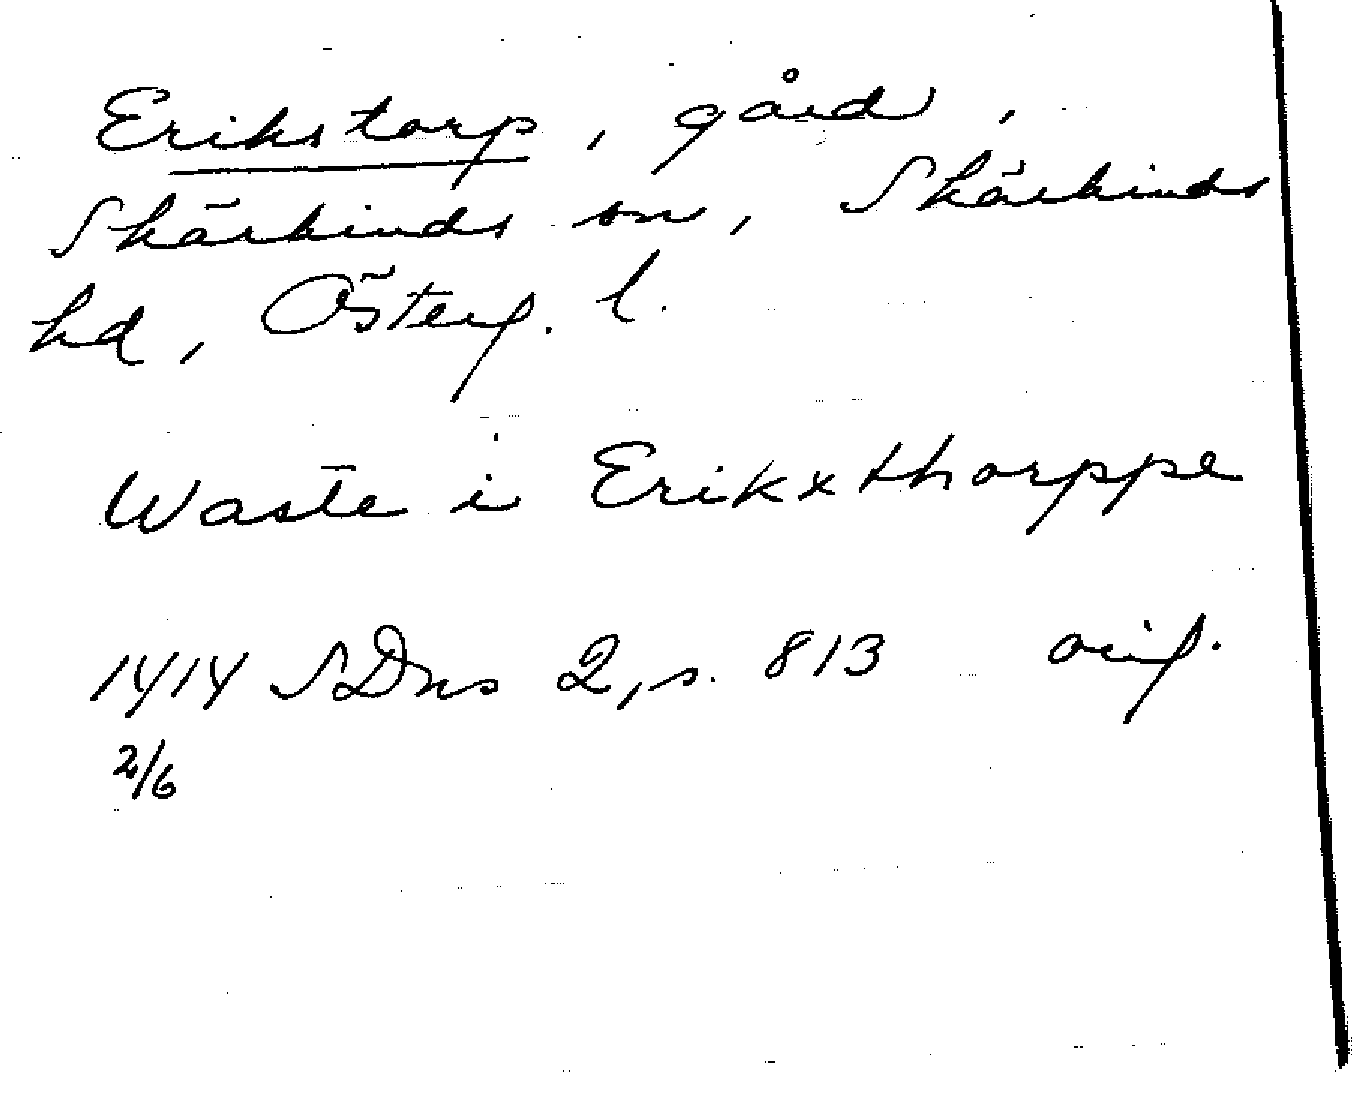 Erikstorp, gård,
Skärkinds sn, Skärkinds
hd, Österg. l.
Waste i Erikxthorppe
1414 SDns 2, s. 813 orig.
2/6